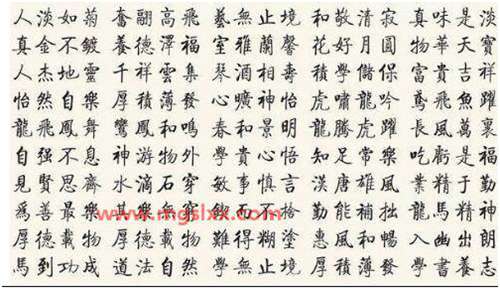 人淡如菊 奮翮高飛 藝無止境 和敬清寂 真味是淡
真金不鍍 養德澤福 室雅蘭馨 花好月圓 物華天寶
人杰地靈 千祥雲集 琴酒相壽 積學儲保 富貴吉祥
怡然自樂 厚積薄發 心曠神怡 虎嘯龍吟 鳶飛魚躍
龍飛鳳舞 鸞鳳和鳴 春和景明 龍騰虎躍 長風萬裏
自强不息 神游物外 學貴心悟 知足常樂 吃虧是福
見賢思齊 水滴石穿 敏事慎言 漢唐雄風 業精于勤
為善最樂 其樂無窮 勤能補拙 龍馬精神
www.mgslxx.com
厚德載物 厚德載物 難得糊塗 惠風和暢 入幽出朗
馬到功成 道法自然 學無止境 厚積薄發 學書養志